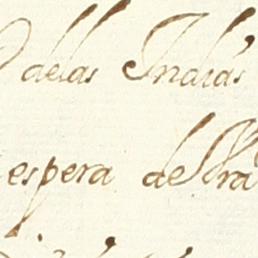 delas Indias
espera de Vra